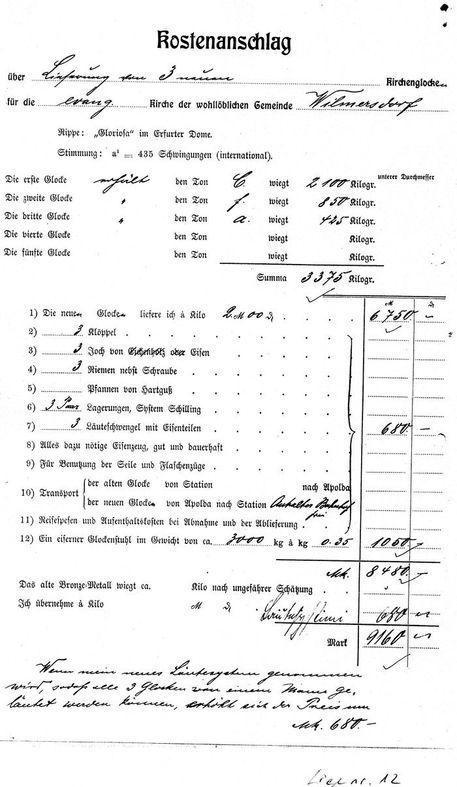 Kostenanschlag
über Lieferung von 3 neuen Kirchenglocken
für die evang. Kirche der wohllöblichen Gemeinde Wilmersdorf
Rippe: „Gloriosa" im Erfurter Dome.
Stimmung: a' = 435 Schwingungen (international).
unterer Durchmesser
Die erste Glocke erhält den Ton C. wiegt 2100 Kilogr.
Die zweite Glocke " den Ton f. wiegt 850 Kilogr.
Die dritte Glocke " den Ton a. wiegt 425 Kilogr.
Die vierte Glocke den Ton wiegt Kilogr.
Die fünfte Glocke den Ton wiegt Kilogr.
Summa 3375 Kilogr.
M. d.
1) Die neuen Glocken liefere ich à Kilo 2 M 00 d. 6750 –
2) 3 Klöppel
3) 3 Joch von Eichenholz oder Eisen
4) 3 Riemen nebst Schraube
5) Pfannen von Hartguß
6) 3 Paar Lagerungen, System Schilling
7) 3 Läuteschwengel mit Eisenteilen 680 –
8) Alles dazu nötige Eisenzeug, gut und dauerhaft
9) Für Benutzung der Seile und Flaschenzüge
10) Transport der alten Glocke von Station nach Apolda
der neuen Glocken von Apolda nach Station Anhalter Bahnhof frei
11) Reisespesen und Aufenthaltskosten bei Abnahme und der Ablieferung
12) Ein eiserner Glockenstuhl im Gewicht von ca. 3000 kg à kg 0.35 1050 –
Mk. 8480 –
Das alte Bronze-Metall wiegt ca. Kilo nach ungefährer Schätzung
Ich übernehme à Kilo M d. 680
Mark 9160
Wenn mein neues Läutesystem genommen
wird, sodaß alle 3 Glocken von einem Mann ge-
läutet werden können, erhöht sich der Preis um
Mk. 680.–
nr. 12